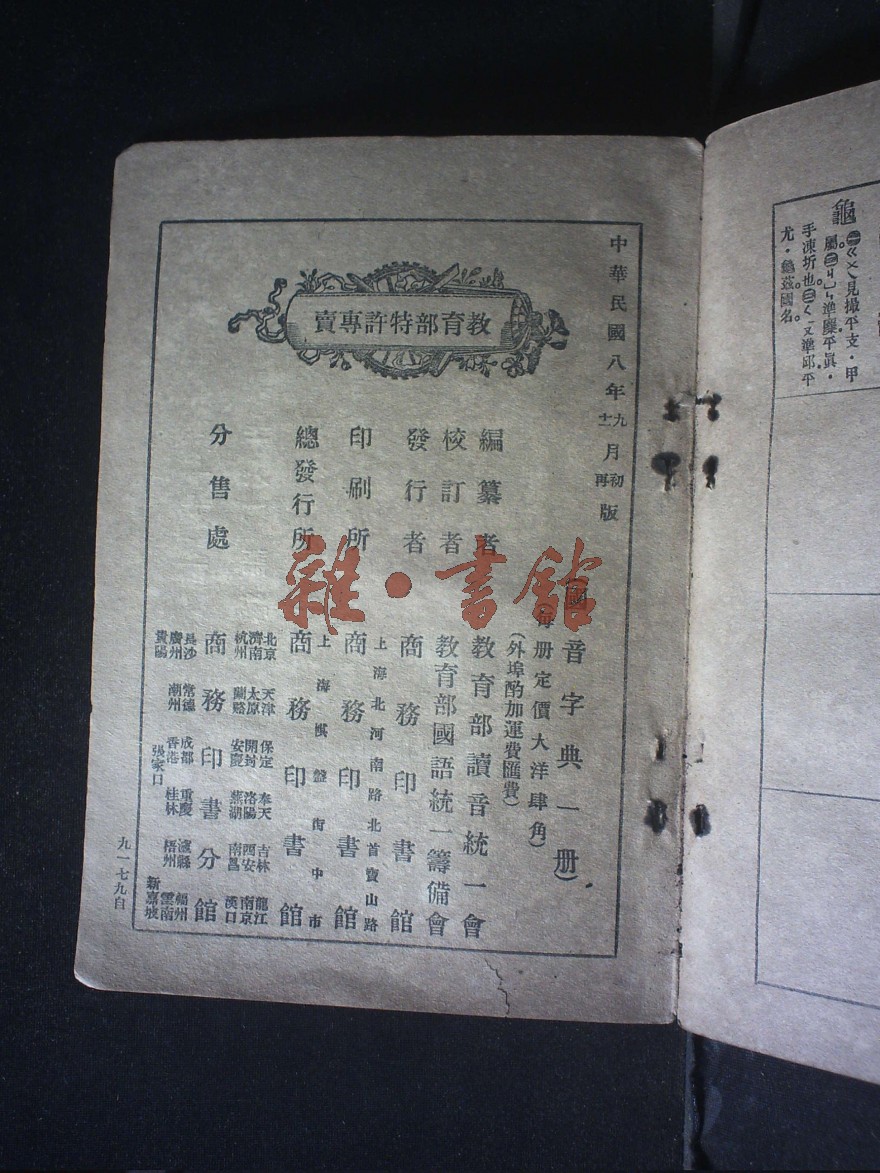 中華民國八年九月初版
十二月再版
教育部特許專賣
國音字典一册
每册定價大洋肆角
(外埠酌加運費匯費)
編纂者 教育部讀音統一會
校訂者 教育部國語統一籌備會
發行者 商務印書館
上海北河南路北首寶山路
印刷所 商務印書館
上海棋盤街中市
總發行所 商務印書館
北京 天津 保定 奉天 吉林 龍江
濟南 太原 開封 洛陽 西安 南京
杭州 蘭谿 安慶 蕪湖 南昌 漢口
分售處 商務印書分館
長沙 常德 成都 重慶 瀘縣 福州
廣州 潮州 香港 桂林 梧州 雲南
貴陽 張家口 新嘉坡
九一七九自
雜·書館
龜
㊀ㄍㄨㄟ見撮平支·甲
手凍坼也㊂ㄑㄧㄡ準邱平
尤·龜茲國名。